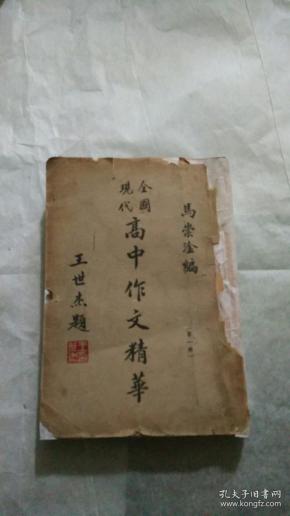 馬崇淦編
全國
現代
高中作文精華
（第一冊）
王世杰題
孔夫子旧书网